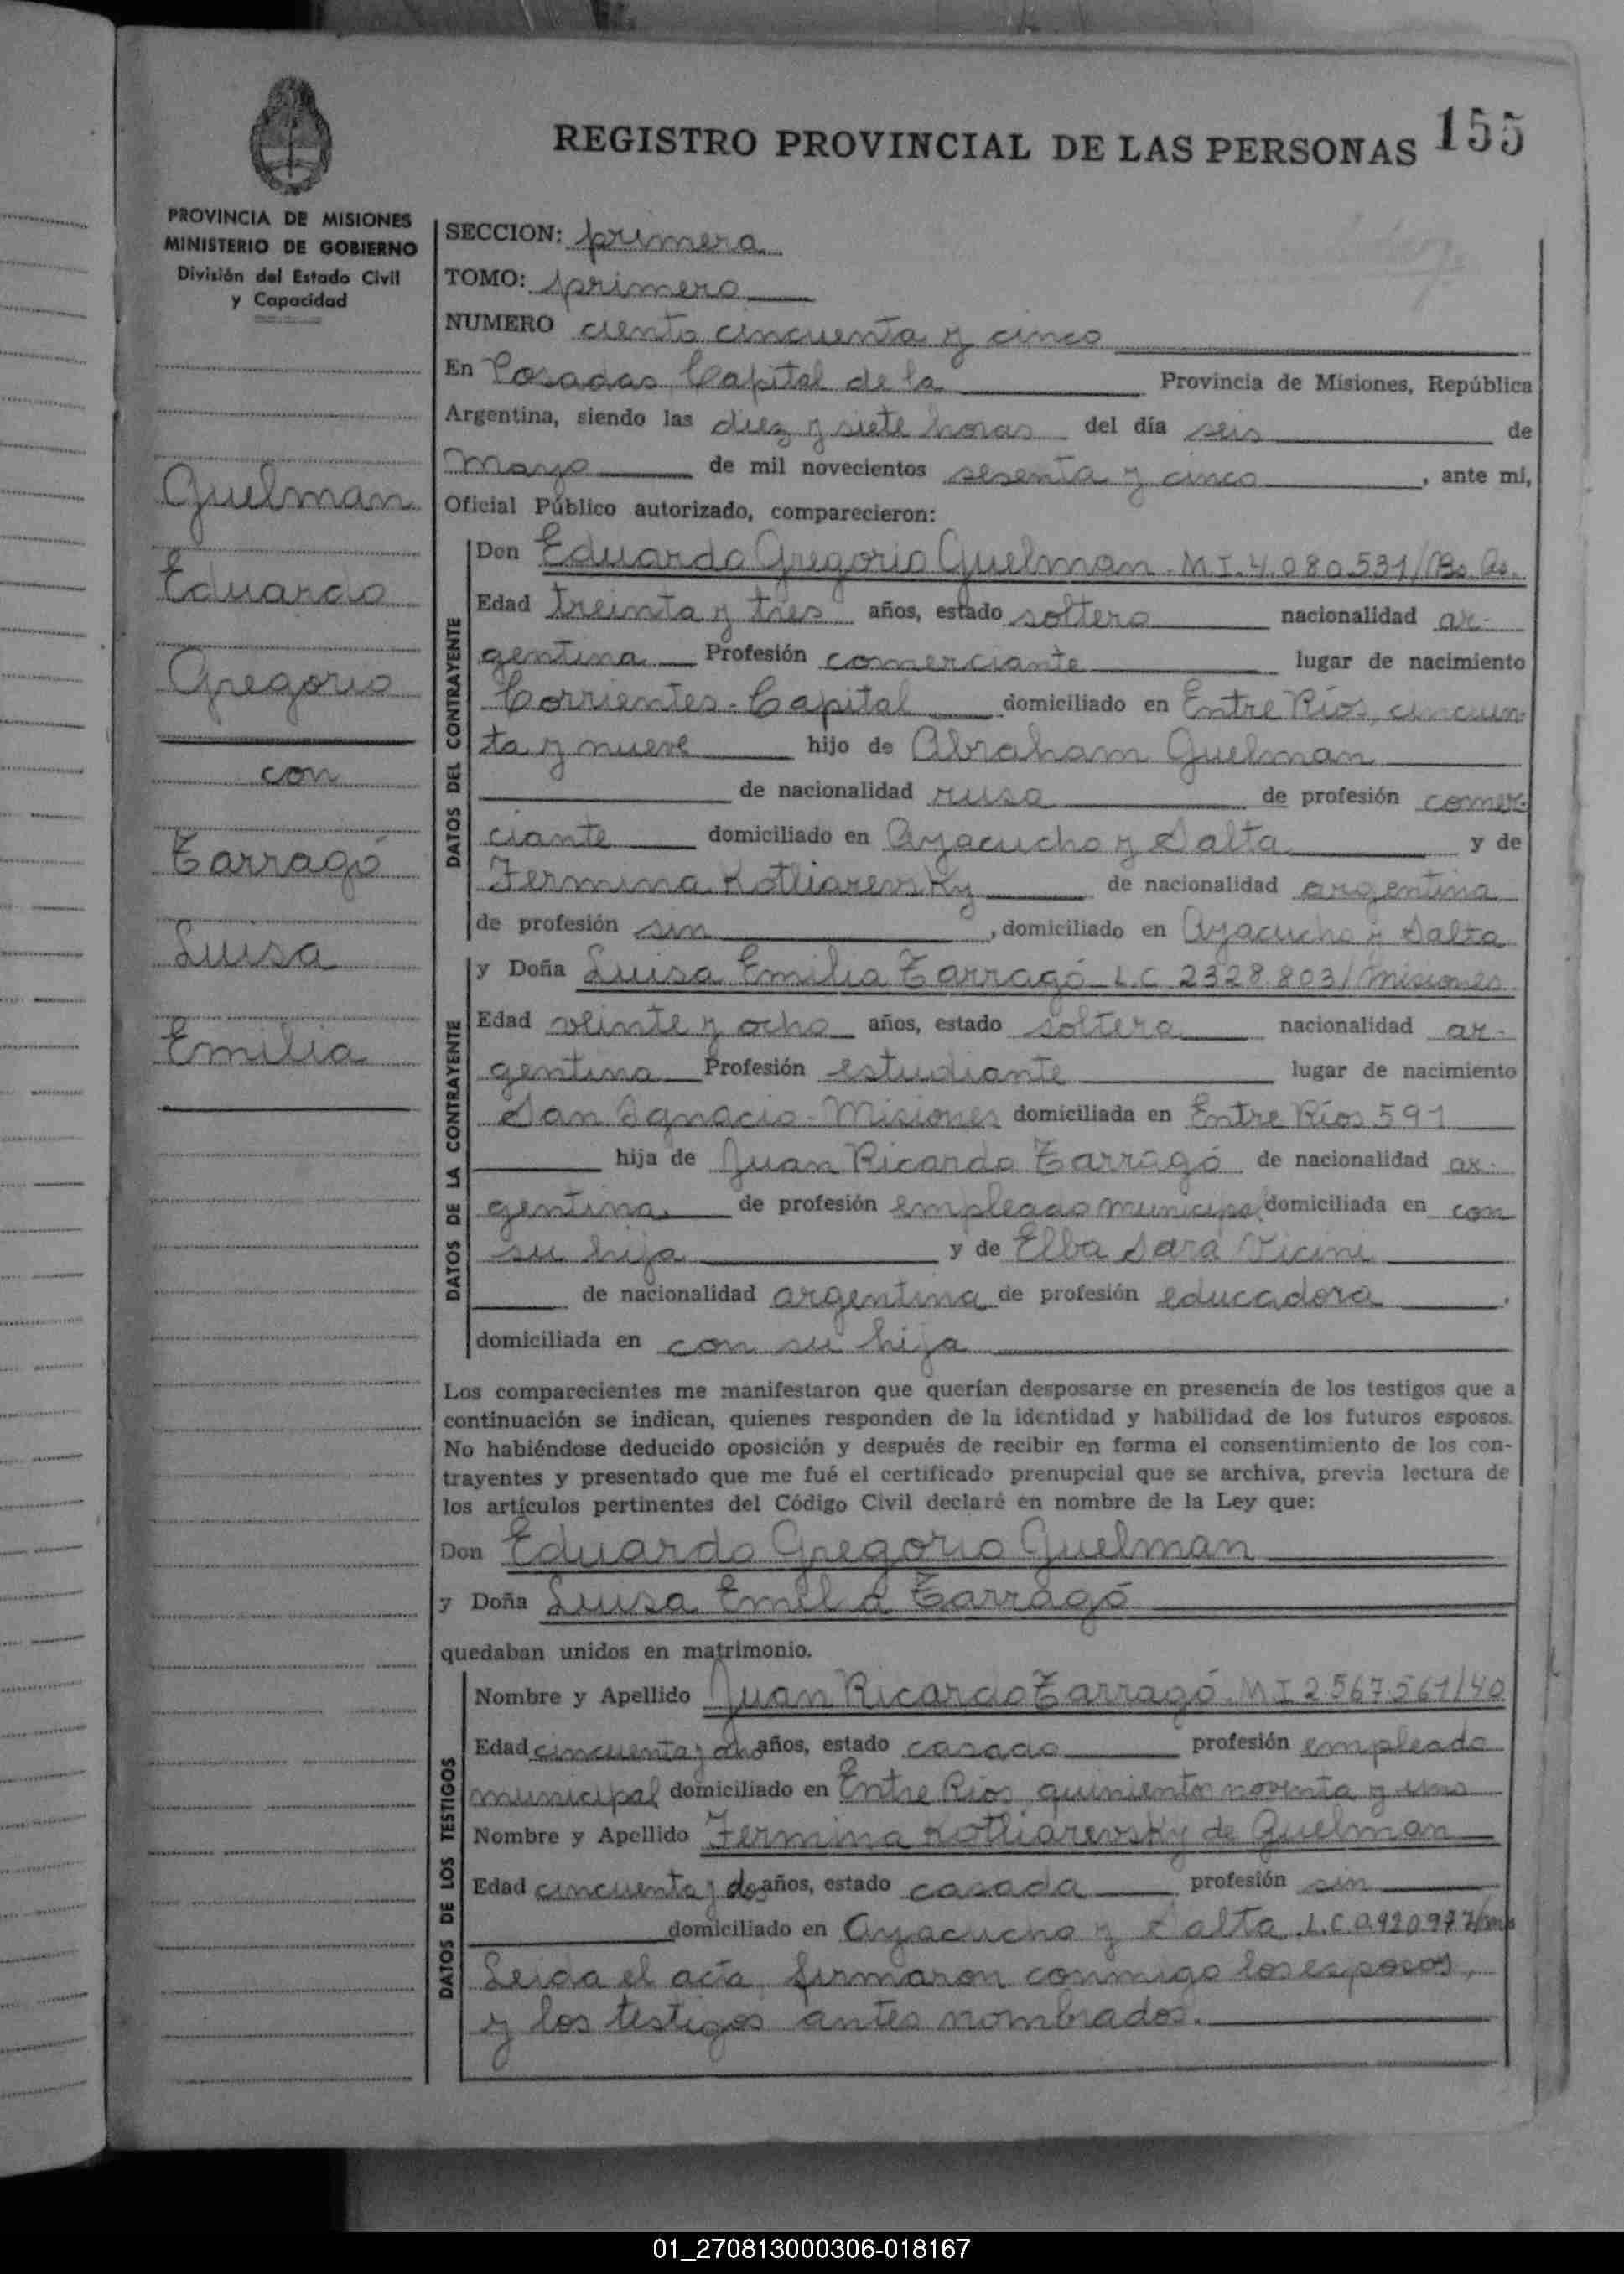 REGISTRO PROVINCIAL DE LAS PERSONAS 155
PROVINCIA DE MISIONES
MINISTERIO DE GOBIERNO
División del Estado Civil
y Capacidad
Guelman
Eduardo
Gregorio
con
Tarragó
Luisa
Emilia
SECCION: primera
TOMO: primero
NUMERO ciento cincuenta y cinco
En Posadas Capital de la Provincia de Misiones, República
Argentina, siendo las diez y siete horas del día seis de
Mayo de mil novecientos sesenta y cinco, ante mi,
Oficial Público autorizado, comparecieron:
DATOS DEL CONTRAYENTE
Don Eduardo Gregorio Guelman. M.I. 4.080531/Bs. As.
Edad treinta y tres años, estado soltero nacionalidad ar-
gentina Profesión comerciante lugar de nacimiento
Corrientes-Capital domiciliado en Entre Ríos, cincuen-
ta y nueve hijo de Abraham Guelman
de nacionalidad rusa de profesión comer-
ciante domiciliado en Ayacucho y Salta y de
Fermina Kotliarevsky de nacionalidad argentina
de profesión sin, domiciliado en Ayacucho y Salta
DATOS DE LA CONTRAYENTE
y Doña Luisa Emilia Tarragó L.C. 2328.803/Misiones
Edad veinte y ocho años, estado soltera nacionalidad ar-
gentina Profesión estudiante lugar de nacimiento
San Ignacio-Misiones domiciliada en Entre Ríos 591
hija de Juan Ricardo Tarragó de nacionalidad ar-
gentina de profesión empleado municipal domiciliada en con
su hija y de Elba Sara Vicini
de nacionalidad argentina de profesión educadora,
domiciliada en con su hija
Los comparecientes me manifestaron que querían desposarse en presencia de los testigos que a
continuación se indican, quienes responden de la identidad y habilidad de los futuros esposos.
No habiéndose deducido oposición y después de recibir en forma el consentimiento de los con-
trayentes y presentado que me fué el certificado prenupcial que se archiva, previa lectura de
los artículos pertinentes del Código Civil declaré en nombre de la Ley que:
Don Eduardo Gregorio Guelman
y Doña Luisa Emilia Tarragó
quedaban unidos en matrimonio.
DATOS DE LOS TESTIGOS
Nombre y Apellido Juan Ricardo Tarragó. M I 2.567.561/40
Edad cincuenta y ocho años, estado casado profesión empleado
municipal domiciliado en Entre Ríos quinientos noventa y uno
Nombre y Apellido Fermina Kotliarevsky de Guelman
Edad cincuenta y dos años, estado casada profesión sin
domiciliado en Ayacucho y Salta L.C.0.920.977/Mnes
Leída el acta, firmaron conmigo los esposos,
y los testigos antes nombrados.
01_270813000306-018167